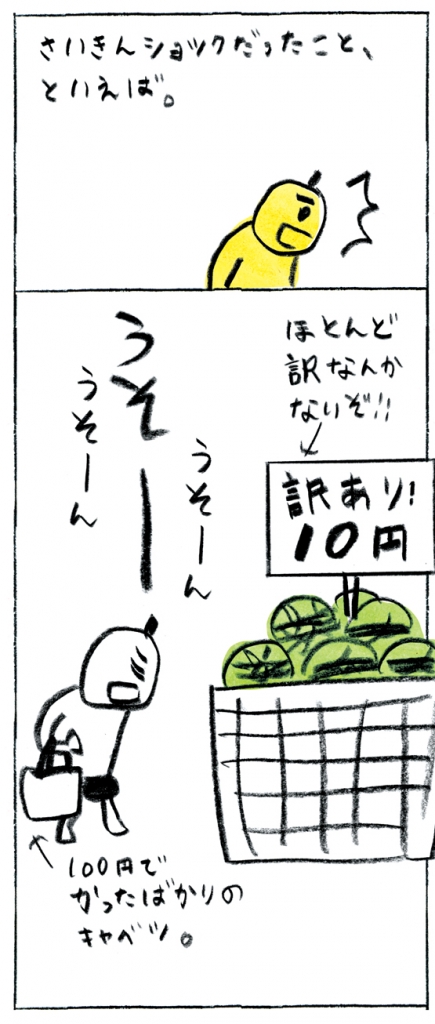 さいきんショックだったこと、
といえば。
ほとんど
訳なんか
ないぞ!!
訳あり!
10円
うそーん
うそー
うそーん
100円で
かったばかりの
キャベツ。